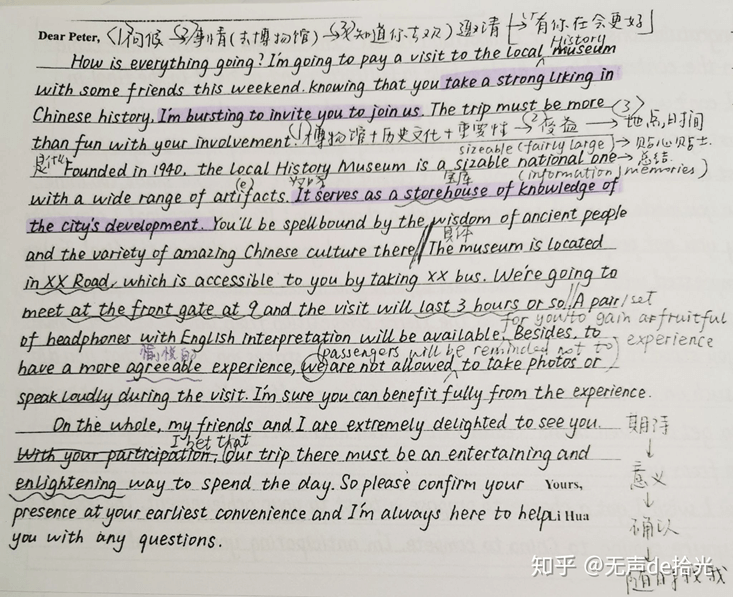 Dear Peter, <1>问候 <2>事情(去博物馆) → <3>知道你喜欢 邀请 → "有你在会更好"
History
How is everything going? I'm going to pay a visit to the local museum
with some friends this weekend. knowing that you take a strong liking in
Chinese history, I'm bursting to invite you to join us. The trip must be more
<1>博物馆+历史文化+重要性 → <2>受益 → <3>地点,时间
than fun with your involvement.
sizeable (fairly large) → 贴心贴士
Founded in 1940, the local History Museum is a sizable national one → 总结
(e) 宝库 (information/memories)
with a wide range of artifacts. It serves as a storehouse of knowledge of
the city's development. You'll be spellbound by the wisdom of ancient people
具体
and the variety of amazing Chinese culture there. The museum is located
in XX Road, which is accessible to you by taking XX bus. We're going to
meet at the front gate at 9 and the visit will last 3 hours or so. A pair/set
for you/to gain a fruitful
of headphones with English interpretation will be available. Besides, to
experience
愉悦的 (passengers will be reminded not to)
have a more agreeable experience, we are not allowed to take photos or
speak loudly during the visit. I'm sure you can benefit fully from the experience.
On the whole, my friends and I are extremely delighted to see you. 期待
I bet that
With your participation, our trip there must be an entertaining and
↓ 意义
enlightening way to spend the day. So please confirm your Yours,
↓ 确认
presence at your earliest convenience and I'm always here to help Li Hua
you with any questions.
↓ 随时找我
知乎 @无声de拾光